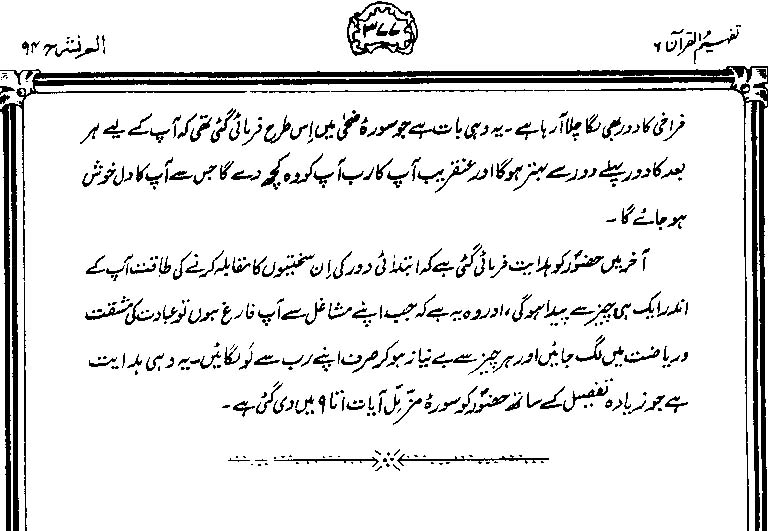 تفہیم القرآن ۶
۳۷۷
الم نشرح ۹۴
فراخی کا دور بھی لگا چلا آ رہا ہے۔ یہ وہی بات ہے جو سورۂ ضحیٰ میں اِس طرح فرمائی گئی تھی کہ آپ کے لیے ہر
بعد کا دور پہلے دور سے بہتر ہوگا اور عنقریب آپ کا رب آپ کو وہ کچھ دے گا جس سے آپ کا دل خوش
ہو جائے گا۔
آخر میں حضورؐ کو ہدایت فرمائی گئی ہے کہ ابتدائی دور کی اِن سختیوں کا مقابلہ کرنے کی طاقت آپ کے
اندر ایک ہی چیز سے پیدا ہوگی، اور وہ یہ ہے کہ جب اپنے مشاغل سے آپ فارغ ہوں تو عبادت کی مشقت
و ریاضت میں لگ جائیں اور ہر چیز سے بے نیاز ہو کر صرف اپنے رب سے لَو لگائیں۔ یہ وہی ہدایت
ہے جو زیادہ تفصیل کے ساتھ حضورؐ کو سورۂ مزّمّل آیات ۱ تا ۹ میں دی گئی ہے۔